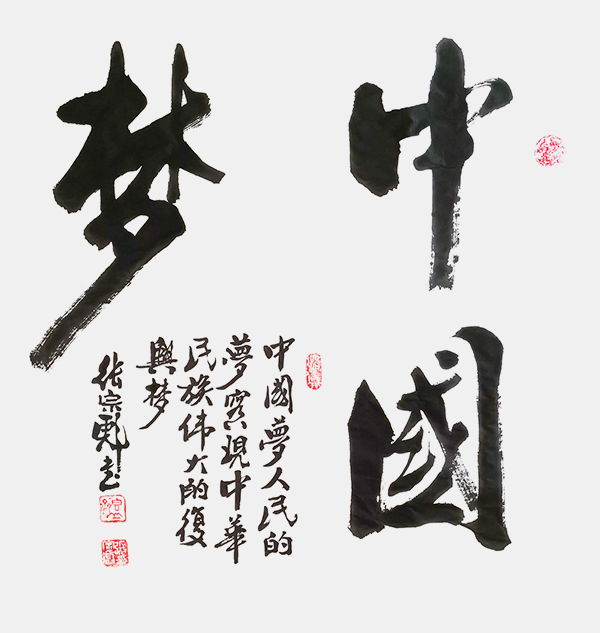 中國
梦
中國夢人民的
夢實現中華
民族伟大的復
興梦
张宗书